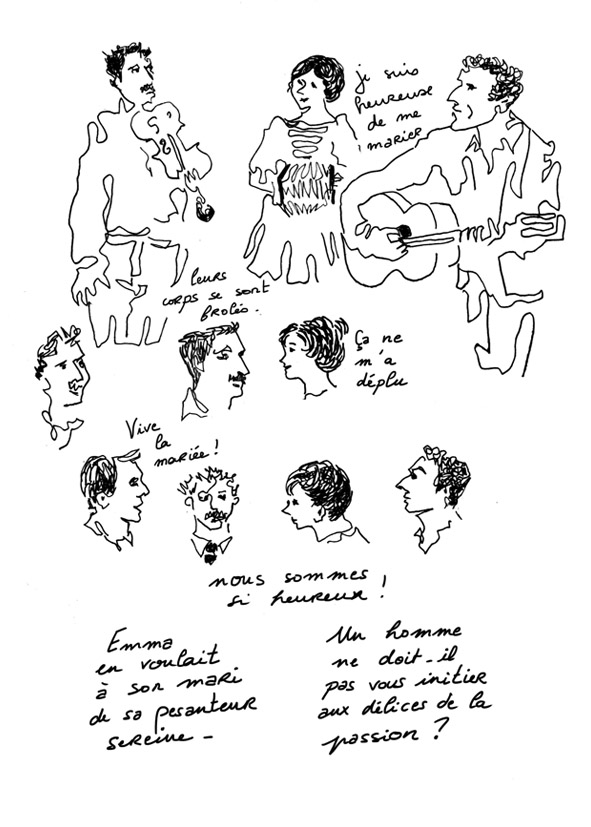 je suis
heureuse
de me
marier
leurs
corps se sont
frolés.
Ça ne
m'a
déplu
Vive
la
mariée !
nous sommes
si heureux !
Emma
en voulait
à son mari
de sa pesanteur
sereine -
Un homme
ne doit-il
pas vous initier
aux délices de la
passion ?